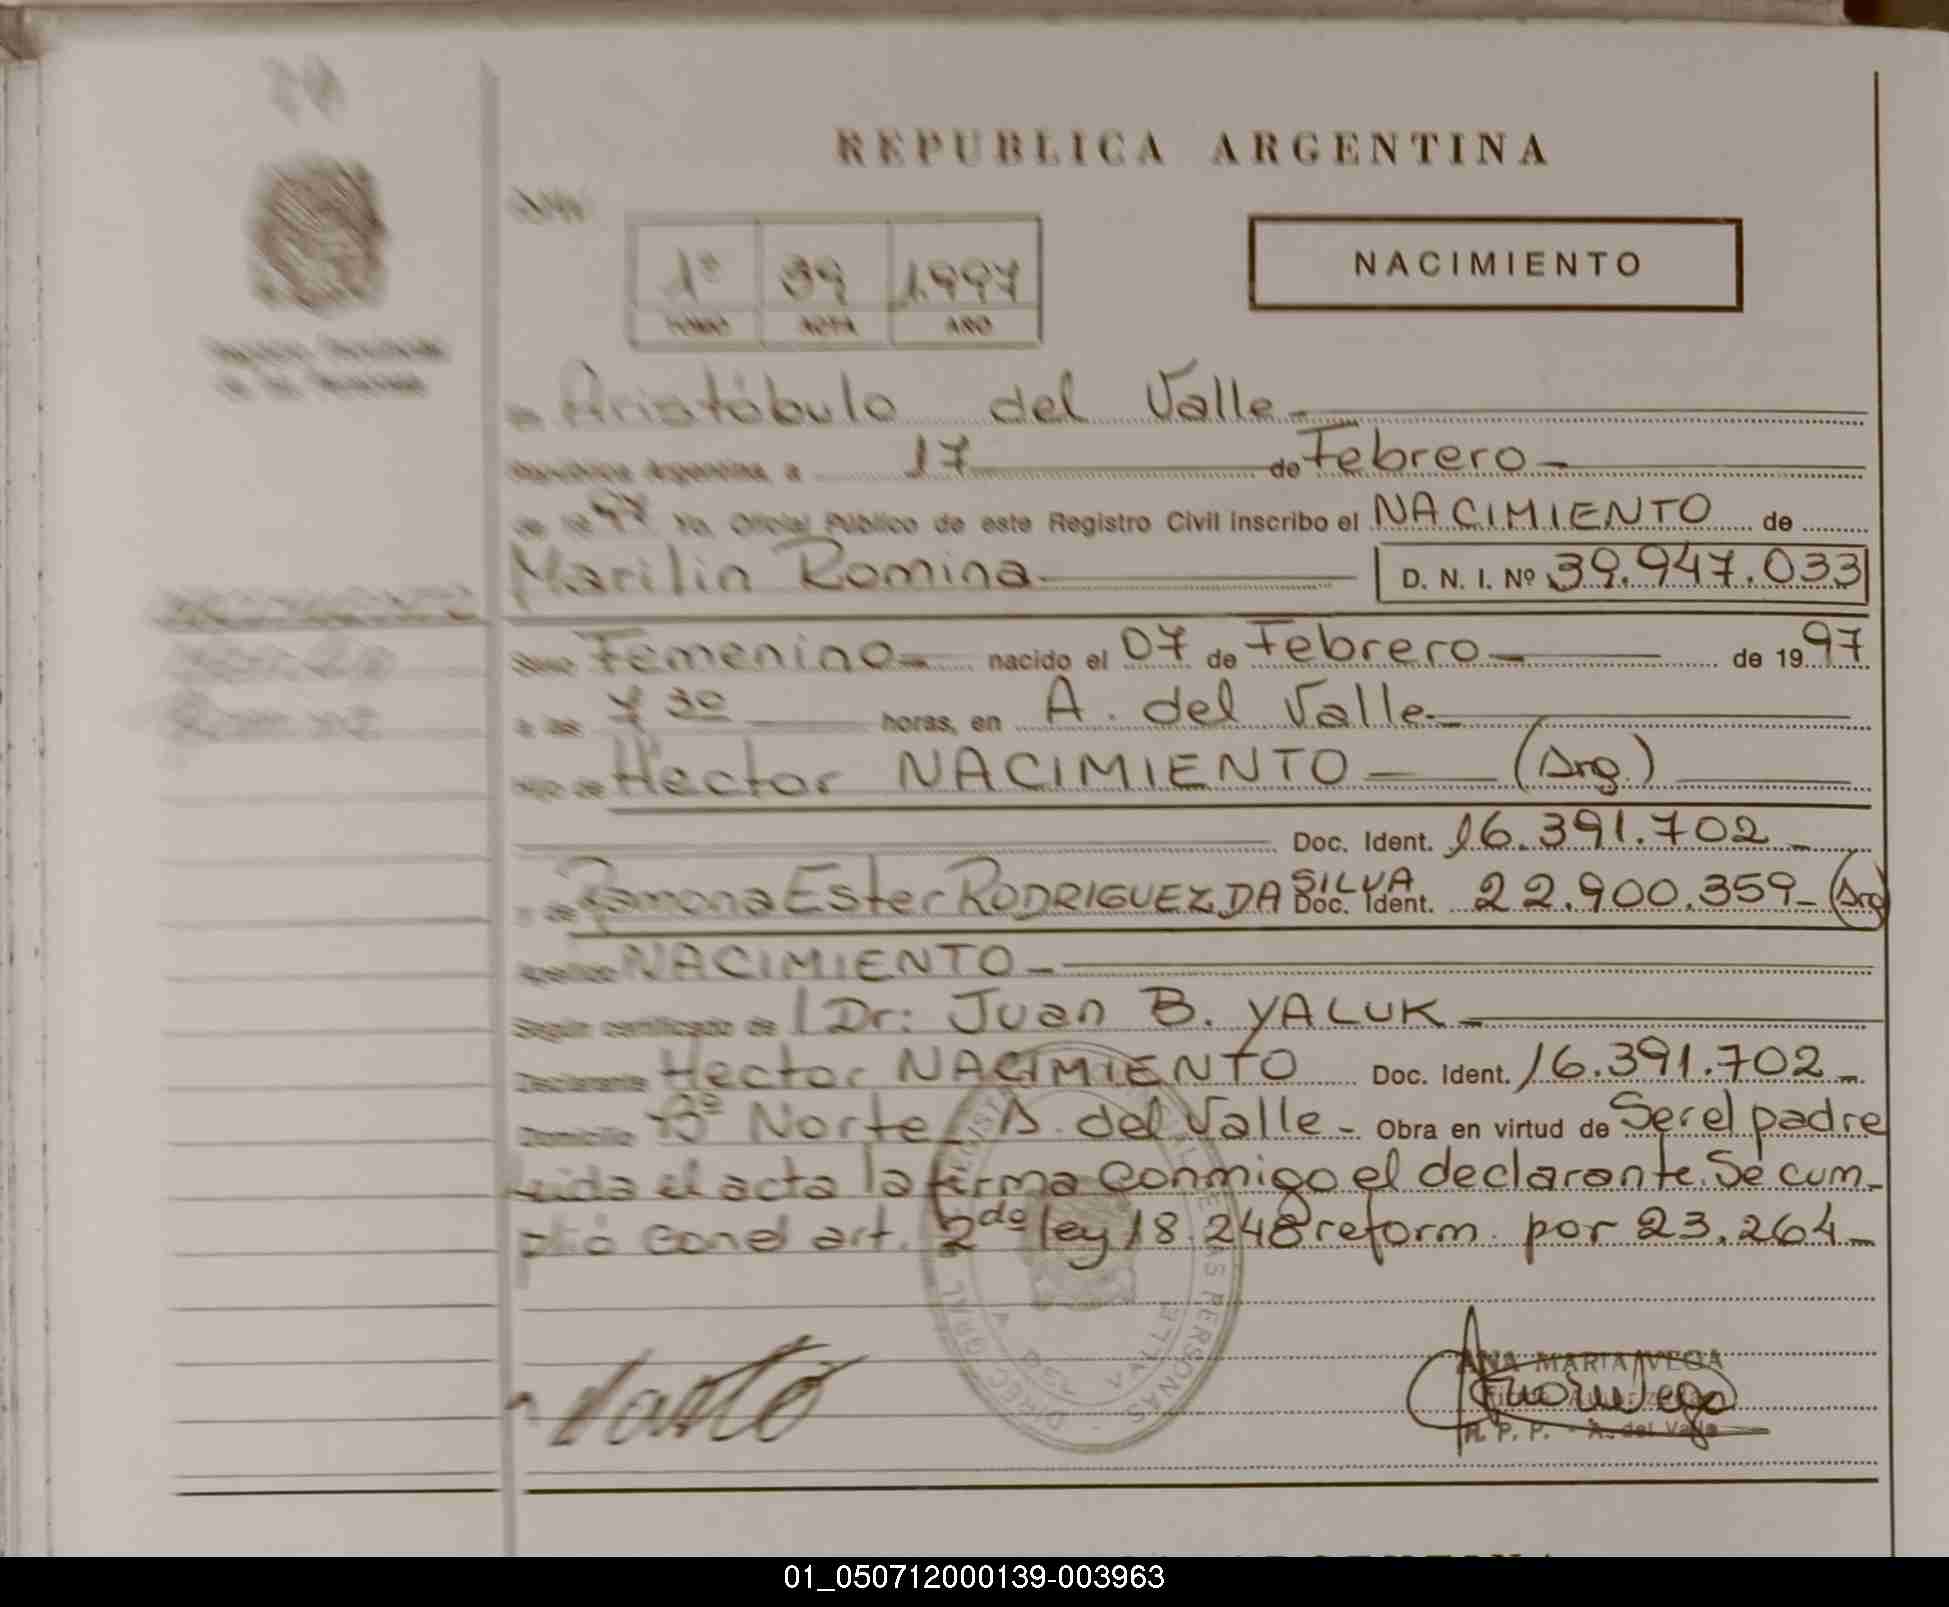 REPUBLICA ARGENTINA
NACIMIENTO
1º 39 1.997
TOMO ACTA AÑO
Registro Provincial
de las Personas
en Aristóbulo del Valle
República Argentina a 17 de Febrero
de 19 97 Yo, Oficial Público de este Registro Civil inscribo el NACIMIENTO de
Marilin Romina D. N. I. Nº 39.947.033
NACIMIENTO
Marilin
Romina
Sexo Femenino nacido el 07 de Febrero de 19 97
a las 7 30 horas, en A. del Valle
Hijo de Hector NACIMIENTO (Arg.)
Doc. Ident. 16.391.702
y de Ramona Ester RODRIGUEZ DA SILVA Doc. Ident. 22.900.359 (Arg)
Apellido NACIMIENTO
Según certificado de Dr: Juan B. YALUK
Declarante Hector NACIMIENTO Doc. Ident. 16.391.702
Domicilio Bº Norte A. del Valle Obra en virtud de Ser el padre
Leida el acta la firma conmigo el declarante. Se cum-
plió con el art. 2do ley 18.248 reform. por 23.264
ANA MARIA VEGA
R. P. P. - A. del Valle
01_050712000139-003963